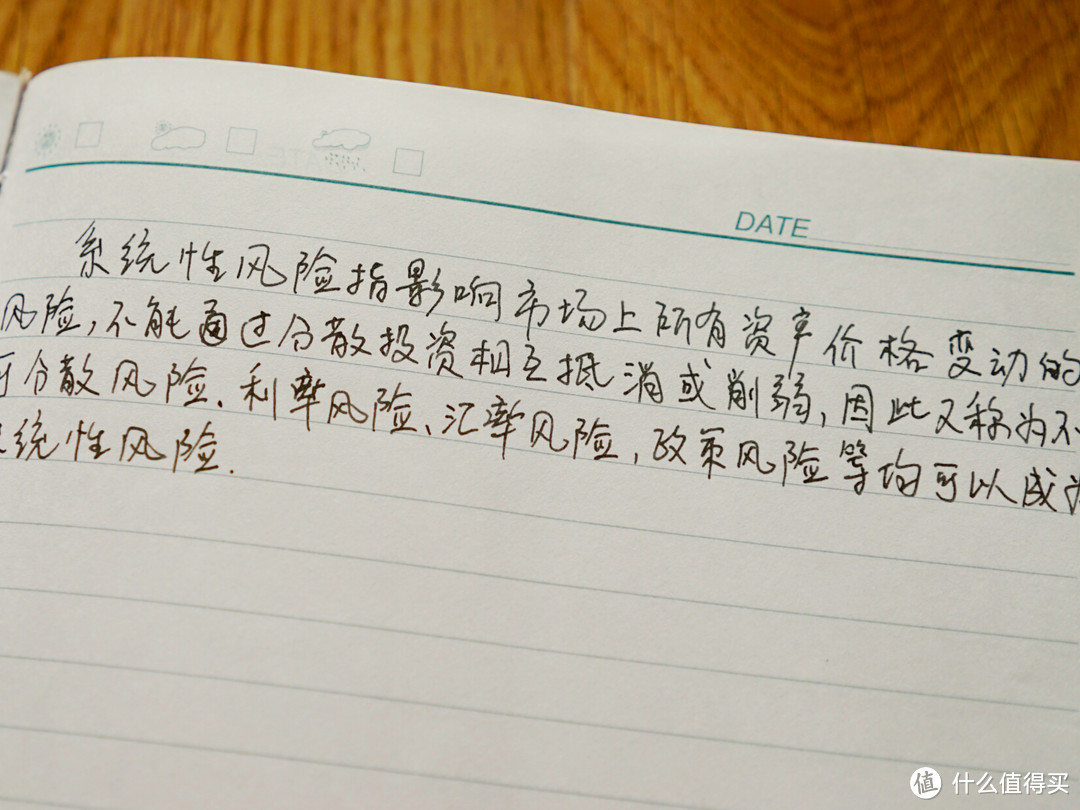 DATE
系统性风险指影响市场上所有资产价格变动的
风险,不能通过分散投资相互抵消或削弱,因此又称为不
可分散风险.利率风险、汇率风险,政策风险等均可以成为
系统性风险.
值 什么值得买